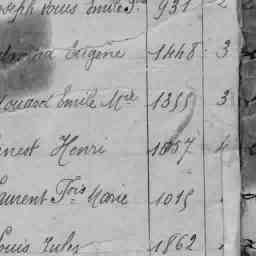 Joseph Louis Emile 931 2
Eugène 1448 3
Edouard Emile Mie 1355 3
Ernest Henri 1857 4
Laurent Fois Marie 1015
Louis Jules 1862